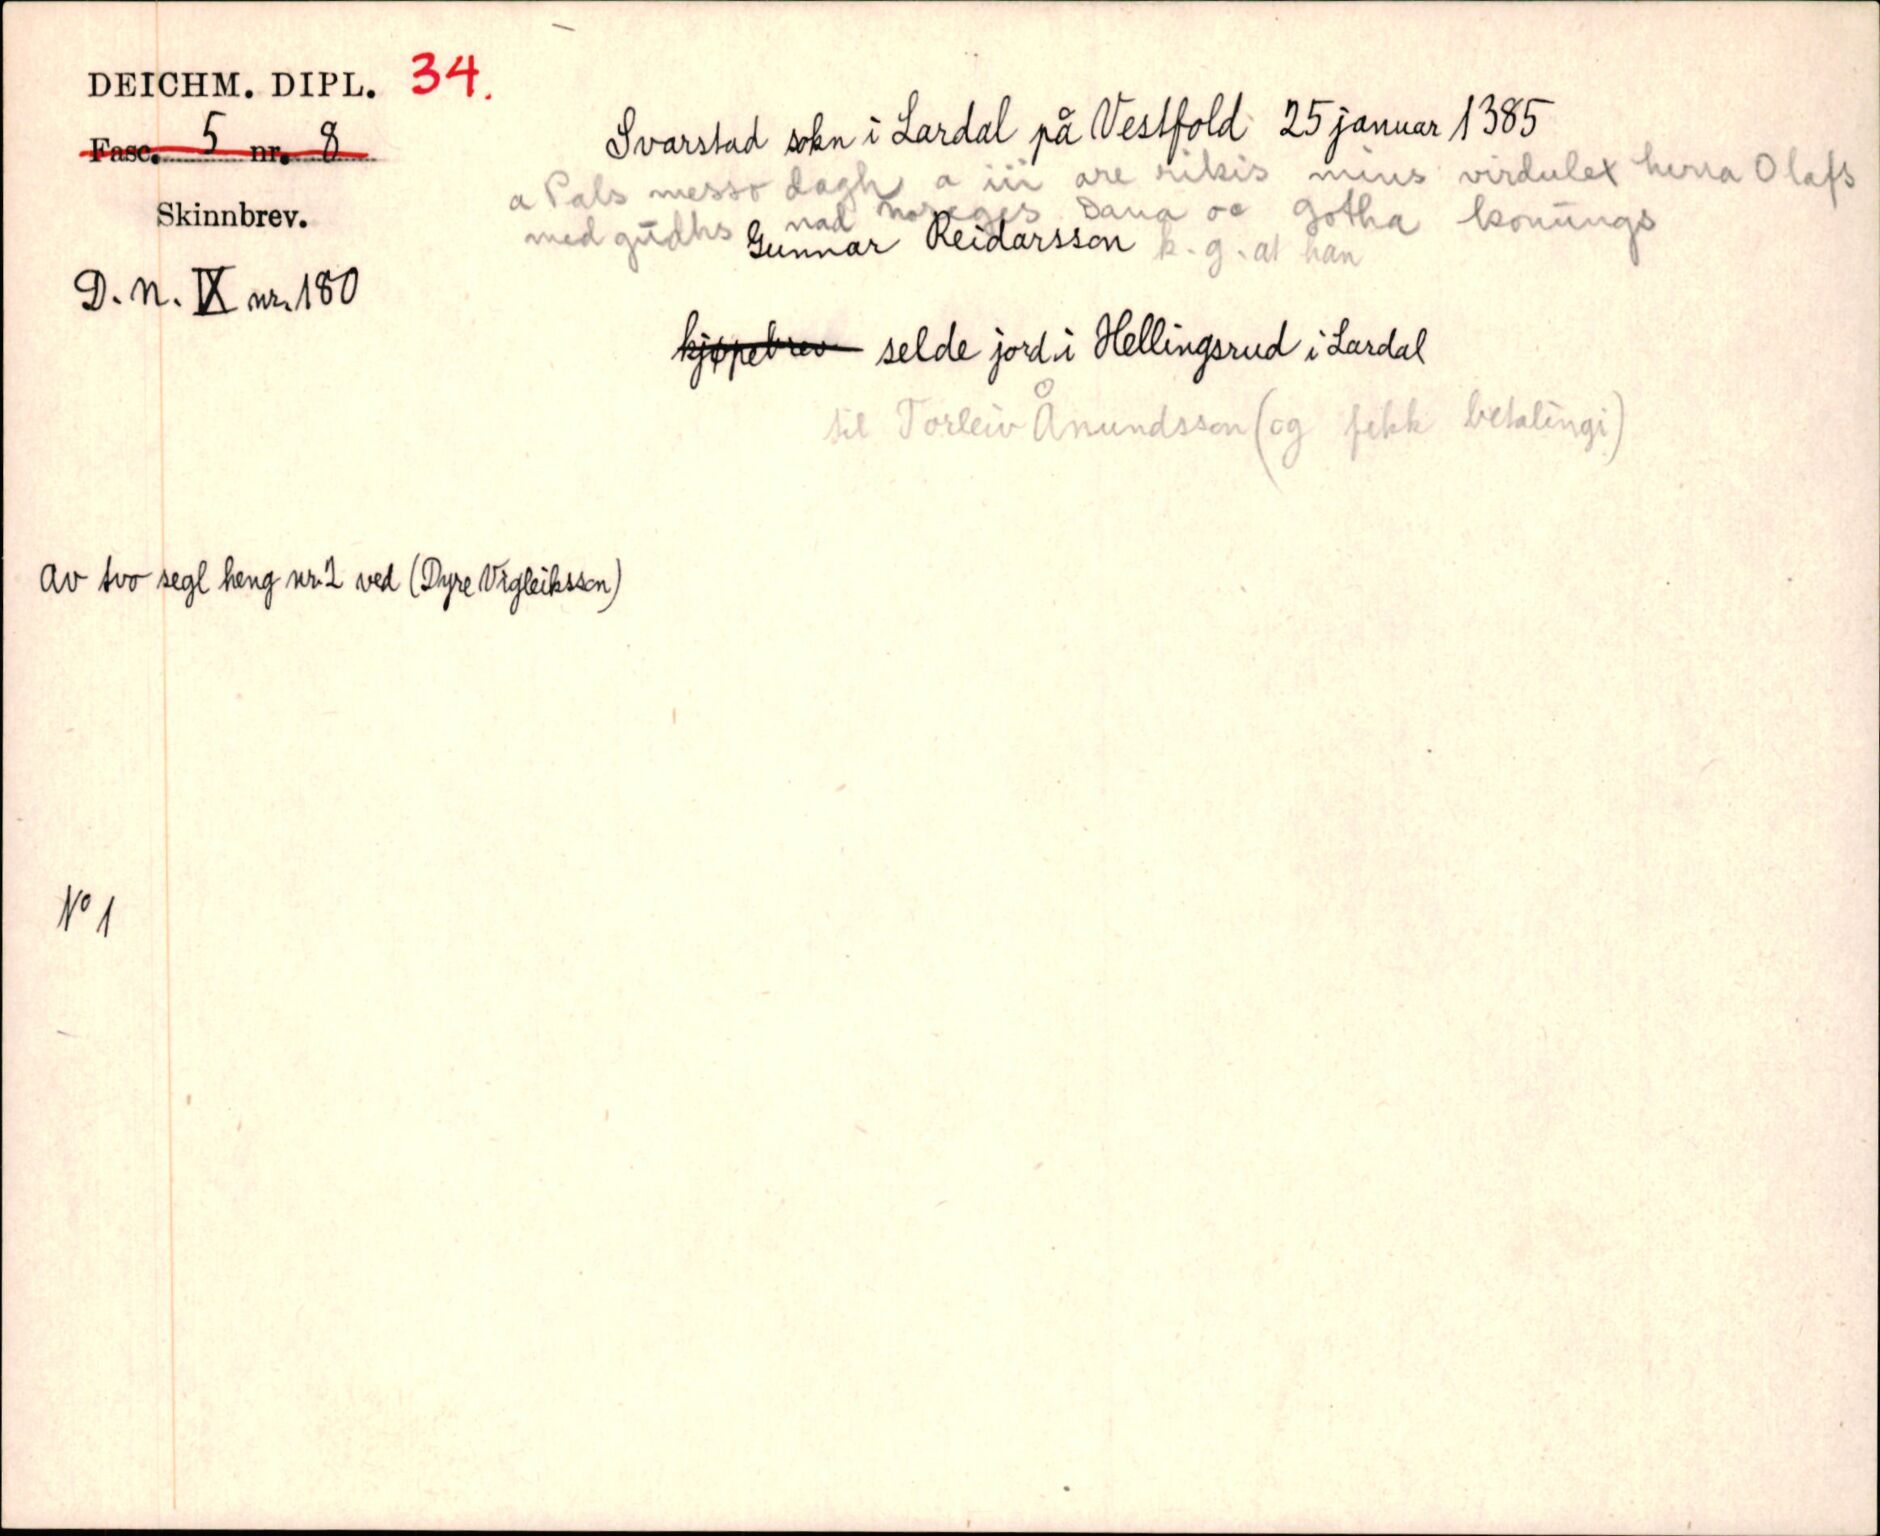 DEICHM. DIPL. 34.
Fasc. 5 nr. 8
Skinnbrev.
D. N. IX nr. 180
Svarstad sokn i Lardal på Vestfold 25 januar 1385
a Pals messo dagh a iii are rikis mins virdulex herra Olafs
med gudhs nad noreges Dana oc gotha konungs
Gunnar Reidarsson k. g. at han
kjøpebrev selde jord i Hellingsrud i Lardal
til Torleiv Ånundsson (og fekk betalingi)
Av tvo segl heng nr. 2 ved (Dyre Vigleiksson)
No 1